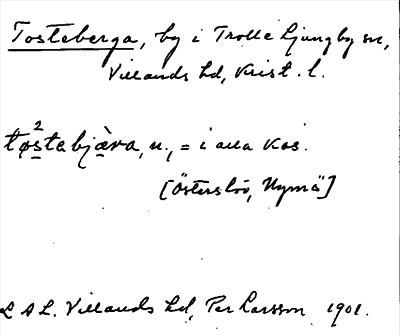 Tosteberga, by i Trolle Ljungby sn,
Villands hd, Krist. l.
tøstabjæ̀ra, n., = i alla kas.
[Österslöv, Nymö]
L A L. Villands hd, Per Larsson 1901.